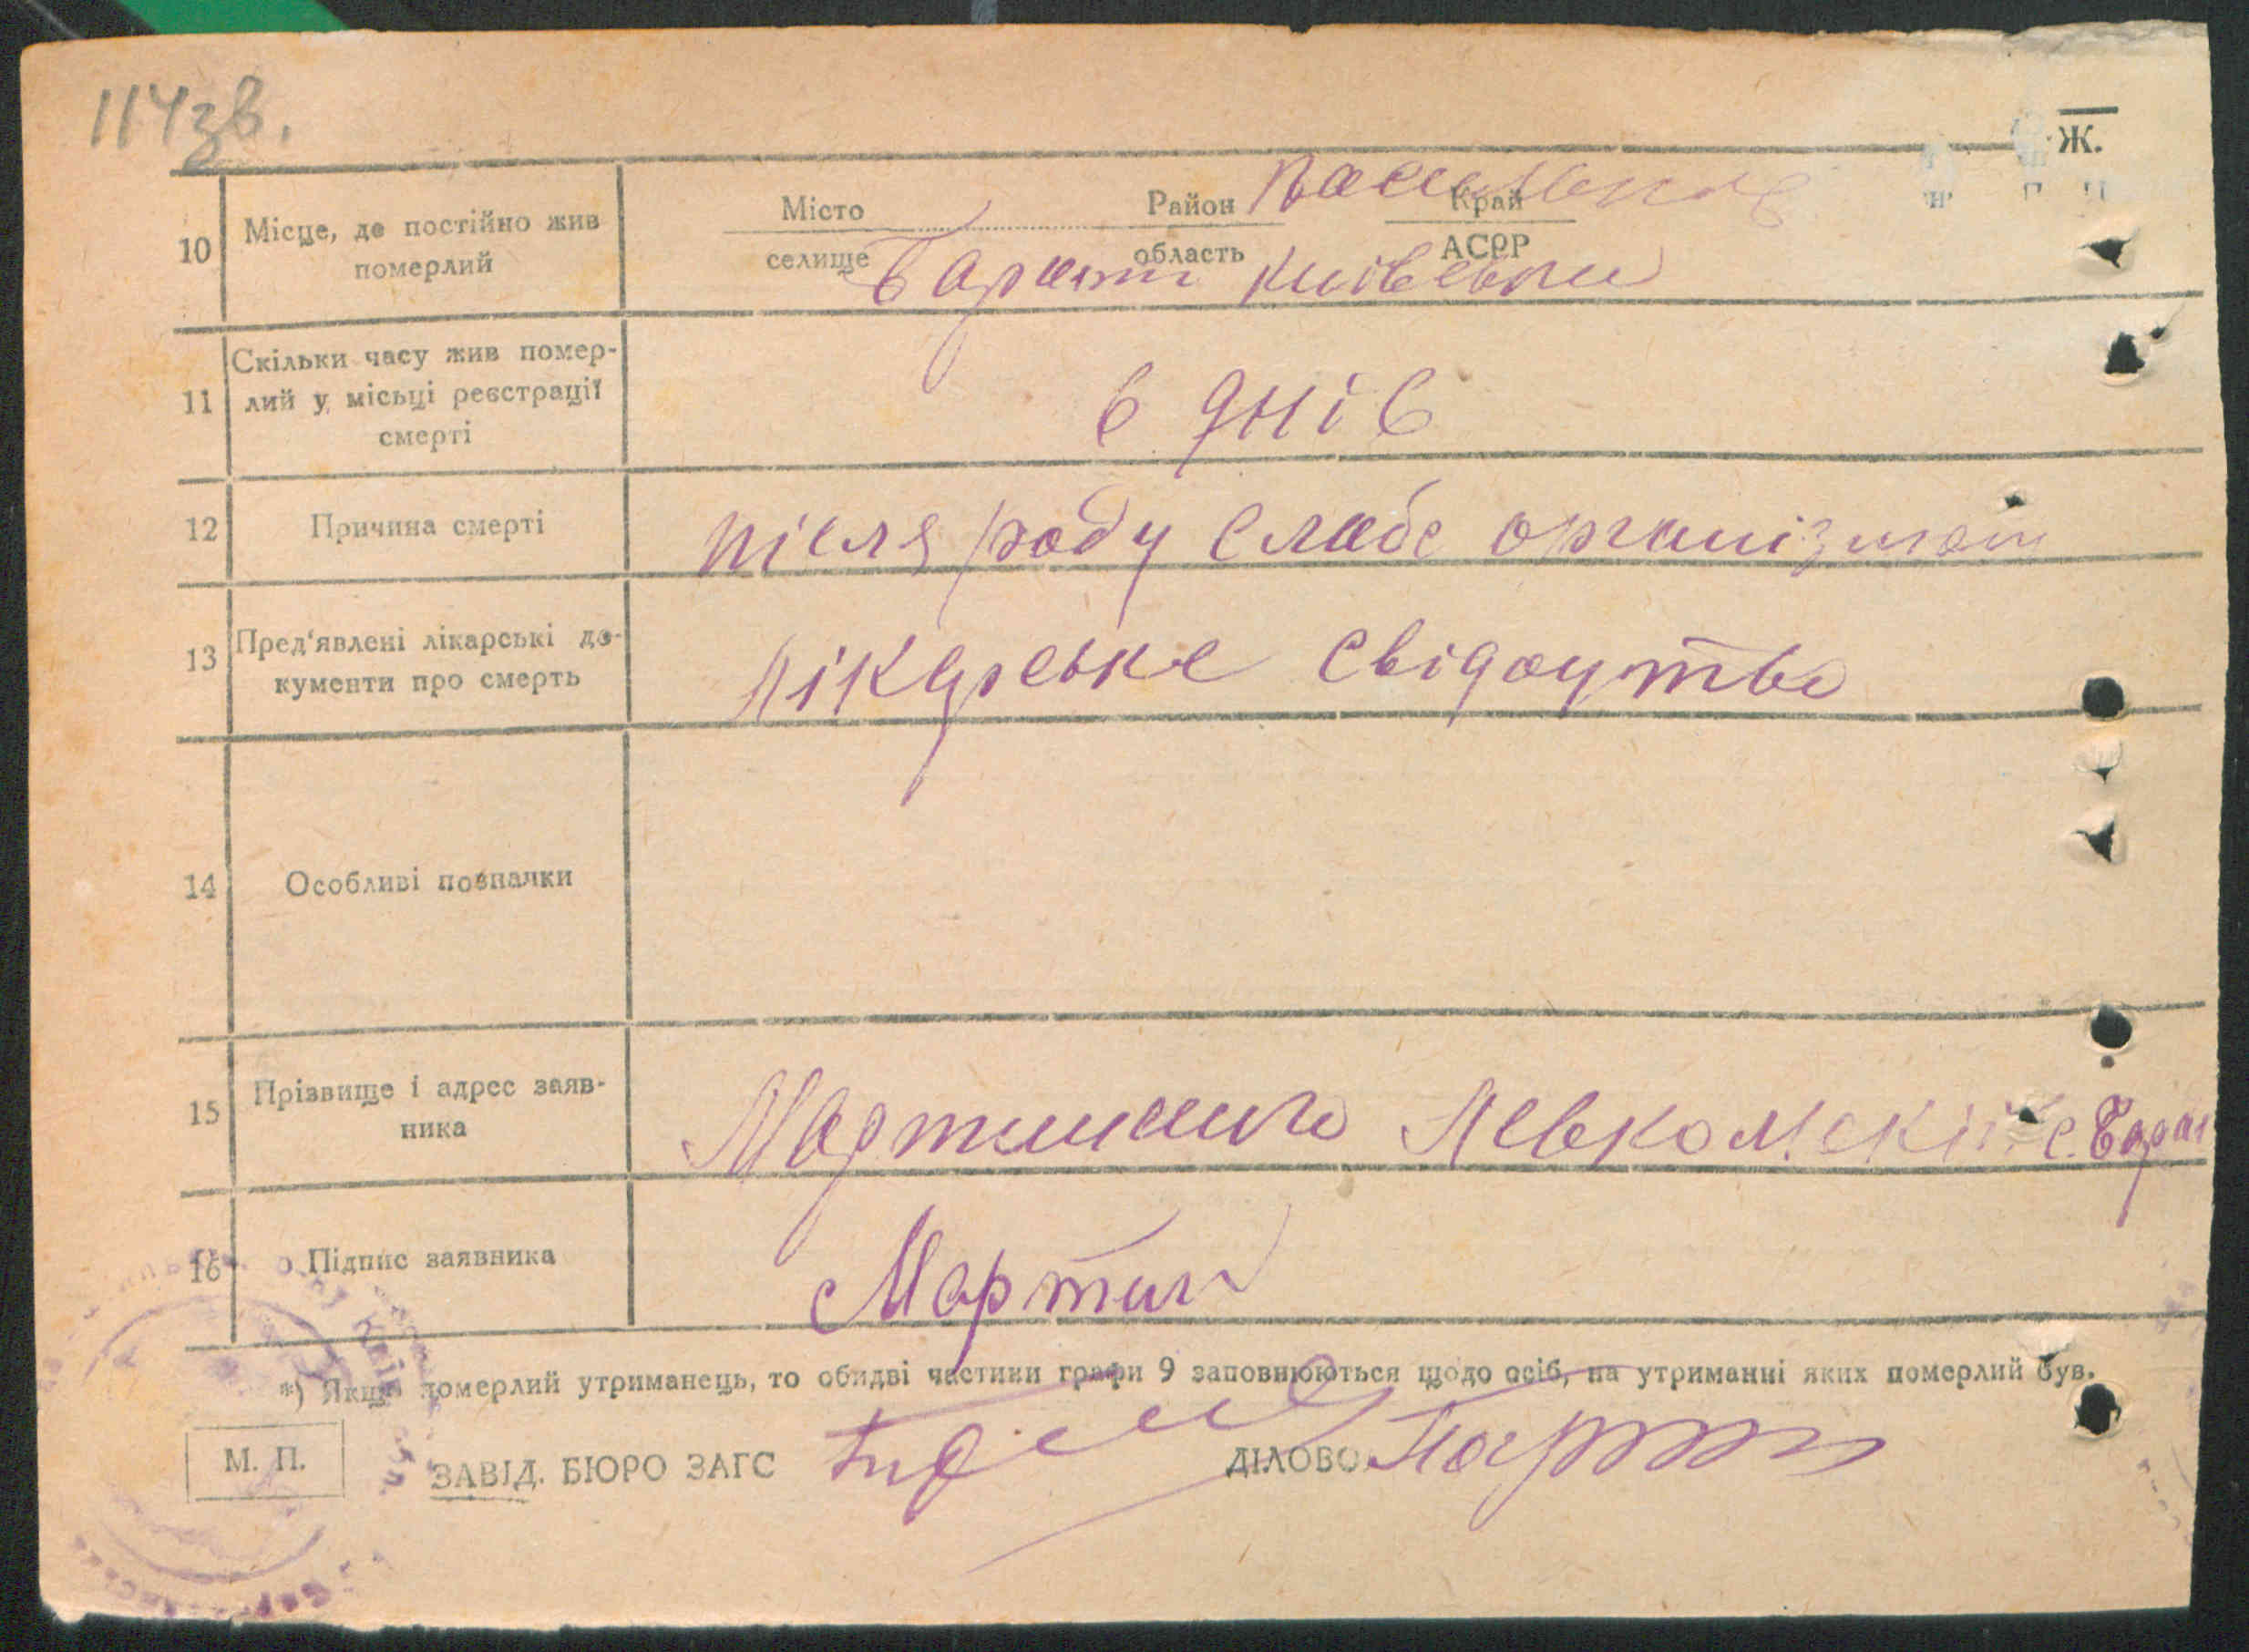 114зв.
Ж.
10 Місце, де постійно жив
померлий
Місто Район Край
селище область АСРР
Барахти Київська
11 Скільки часу жив помер-
лий у місьці реєстрації
смерті
6 днів
12 Причина смерті
після роду слабе організмом
13 Пред'явлені лікарські до-
кументи про смерть
лікарське свідоцтво
14 Особливі позначки
15 Прізвище і адрес заяв-
ника
с. Барах
16 Підпис заявника
Мартин
*) Якщо померлий утриманець, то обидві частини графи 9 заповнюються щодо осіб, на утриманні яких померлий був.
М. П.
ЗАВІД. БЮРО ЗАГС ДІЛОВОД